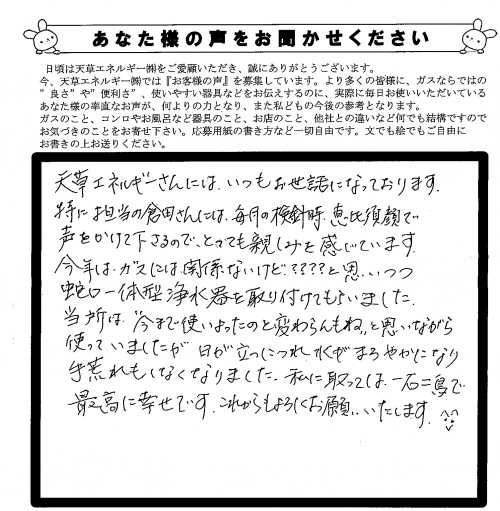 あなた様の声をお聞かせください
日頃は天草エネルギー㈱をご愛顧いただき、誠にありがとうございます。
今、天草エネルギー㈱では『お客様の声』を募集しています。より多くの皆様に、ガスならではの
”良さ”や”便利さ”、使いやすい器具などをお伝えするのに、実際に毎日お使いいただいている
あなた様の率直なお声が、何よりの力となり、また私どもの今後の参考となります。
ガスのこと、コンロやお風呂など器具のこと、お店のこと、他社との違いなど何でも結構ですので
お気づきのことをお寄せ下さい。応募用紙の書き方など一切自由です。文でも絵でもご自由に
お書きの上お送りください。
天草エネルギーさんには、いつもお世話になっております。
特にお担当の倉田さんには、毎月の検針時、恵比須顔で
声をかけて下さるので、とっても親しみを感じています。
今年は、ガスには関係ないけど????と思いつつ
蛇口一体型浄水器を取り付けてもらいました。
当所は“今まで使いよったのと変わらんもね”と思いながら
使っていましたが 日が立つにつれ 水がまろやかになり
手荒れもしなくなりました。私に取っては、一石二鳥で
最高に幸せです。これからもよろしくお願いいたします。^^